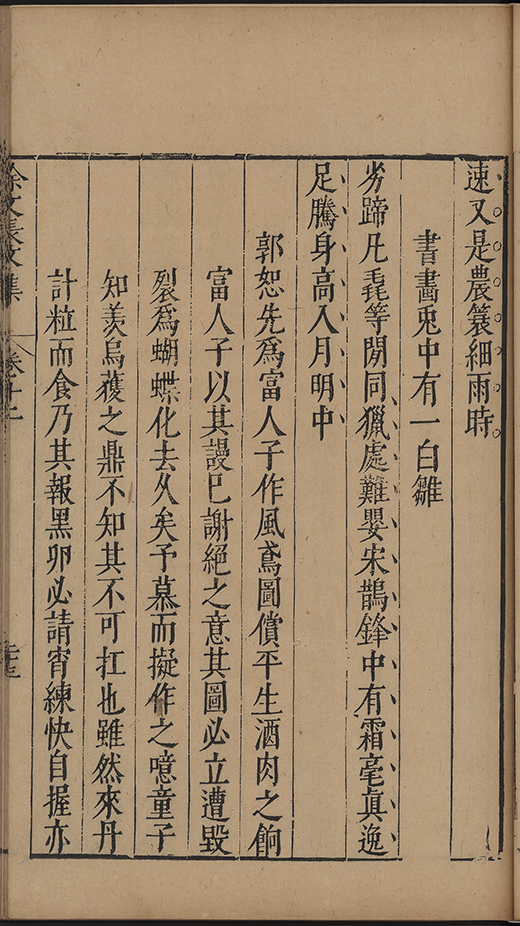 速又是農簑細雨時
書畵兎中有一白雛
劣蹄凡毳等閒同獵處難嬰宋鵲鋒中有霜毫眞逸
足騰身高入月明中
郭恕先爲富人子作風鳶圖償平生酒肉之餉
富人子以其謾巳謝絕之意其圖必立遭毀
裂爲蝴蝶化去久矣予慕而擬作之噫童子
知羡烏蒦之鼎不知其不可扛也雖然來丹
計粒而食乃其報黑卵必請宵練快自握亦
徐文長文集 卷十二